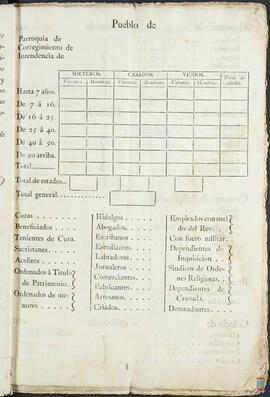 Pueblo de
Parroquia de
Corregimiento de
Intendencia de
SOLTEROS. CASADOS. VIUDOS. Total de
Varones. Hembras. Varones. Hembras. Varones. Hembras.
Hasta 7 años.
De 7 á 16.
De 16 á 25.
De 25 á 40.
De 40 á 50.
De 50 arriba.
Total
Total de estados
Total general
Curas
Beneficiados
Tenientes de Cura.
Sacristanes
Acolitos
Ordenados á Titulo
de Patrimonio
Ordenados de me-
nores
Hidalgos
Abogados
Escribanos
Estudiantes
Labradores
Jornaleros
Comerciantes
Fabricantes
Artesanos
Criados
Empleados con suel-
do del Rey
Con fuero militar
Dependientes de
Inquisicion
Sindicos de Orde-
nes Religiosas
Dependientes de
Cruzada
Demandantes